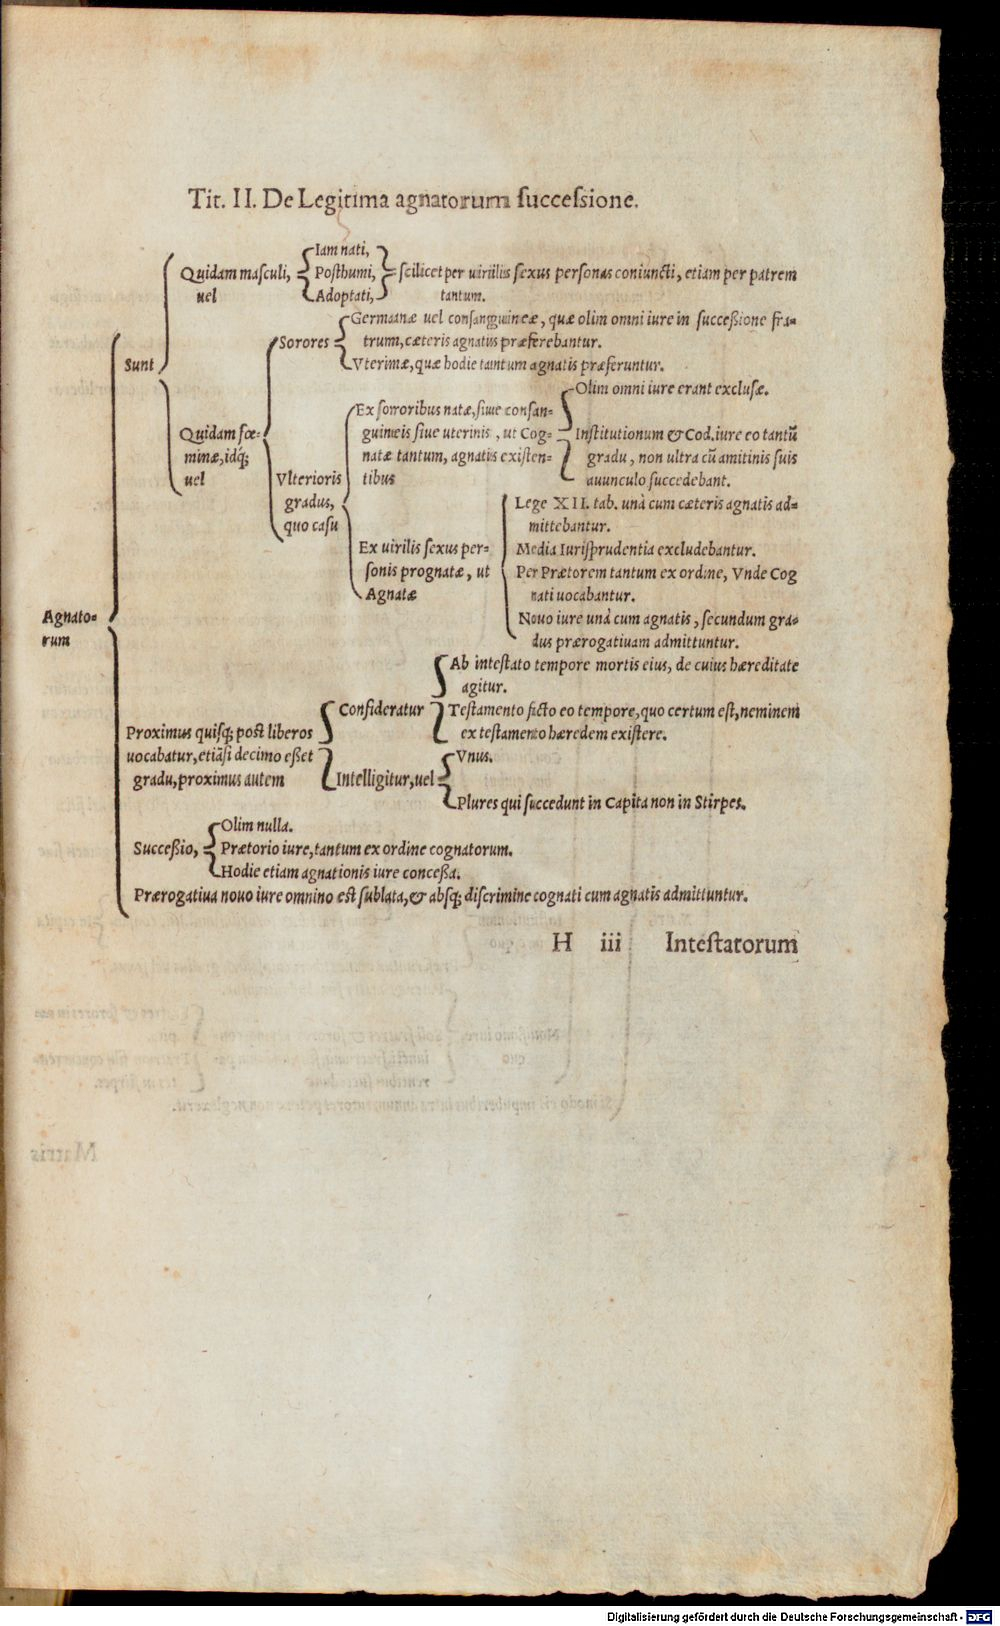 Tit. II. De Legitima agnatorum successione.
Iam nati,
Quidam masculi, Posthumi, scilicet per uirilis sexus personas coniuncti, etiam per patrem
uel Adoptati, tantum.
Germanæ uel consanguineæ, quæ olim omni iure in successione fra-
Sorores trum, cæteris agnatis præferebantur.
Sunt Vterinæ, quæ hodie tantum agnatis præferuntur.
Olim omni iure erant exclusæ.
Ex sororibus natæ, siue consan-
Quidam fœ- guineis siue uterinis, ut Cog- Institutionum & Cod. iure eo tantũ
minæ, idq́; natæ tantum, agnatis existen- gradu, non ultra cũ amitinis suis
uel Vlterioris tibus auunculo succedebant.
gradus, Lege XII. tab. unà cum cæteris agnatis ad-
quo casu mittebantur.
Ex uirilis sexus per- Media Iurisprudentia excludebantur.
sonis prognatæ, ut Per Prætorem tantum ex ordine, Vnde Cog
Agnatæ nati uocabantur.
Agnato- Nouo iure unà cum agnatis, secundum gra-
rum dus prærogatiuam admittuntur.
Ab intestato tempore mortis eius, de cuius hæreditate
agitur.
Consideratur Testamento facto eo tempore, quo certum est, neminem
Proximus quisq; post liberos ex testamento hæredem existere.
uocabatur, etiãsi decimo esset Vnus.
gradu, proximus autem Intelligitur, uel
Plures qui succedunt in Capita non in Stirpes.
Olim nulla.
Successio, Prætorio iure, tantum ex ordine cognatorum.
Hodie etiam agnationis iure concessa.
Prærogatiua nouo iure omnino est sublata, & absq; discrimine cognati cum agnatis admittuntur.
H iii Intestatorum
Digitalisierung gefördert durch die Deutsche Forschungsgemeinschaft - DFG